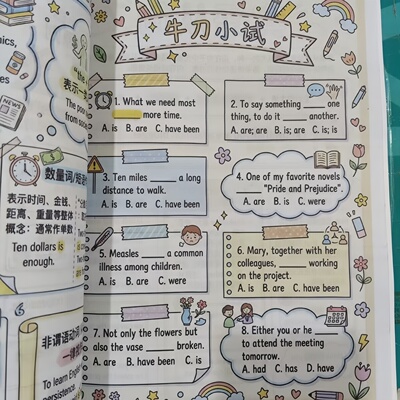 表示一
The poe
from soci
NEWS
数量词/短语
表示时间、金钱、
距离、重量等整体
概念：通常作单数
Ten dollars is
enough.
非谓语动词
To learn Engl
persistence.
牛刀小试
1. What we need most
_____ more time.
A. is B. are C. have been
2. To say something _____ one
thing, to do it _____ another.
A. are; are B. is; are C. is; is
3. Ten miles _____ a long
distance to walk.
A. is B. are C. have been
4. One of my favorite novels
_____ "Pride and Prejudice".
A. are B. is C. have been
5. Measles _____ a common
illness among children.
A. are B. is C. have been
6. Mary, together with her
colleagues, _____ working
on the project.
A. is B. are C. have been
7. Not only the flowers but
also the vase _____ broken.
A. are B. have been C. is
8. Either you or he _____
to attend the meeting
tomorrow.
A. had C. has D. have